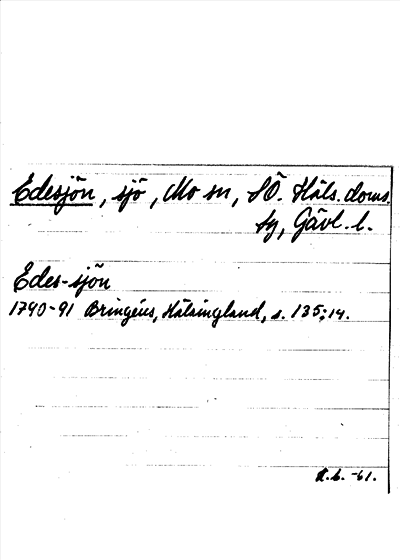 Edesjön, sjö, Mo sn, SÖ. Häls. doms.
Gävl. l.
Edes-sjön
1790-91 Bringéus, Hälsingland, s. 135; 14.
-61.